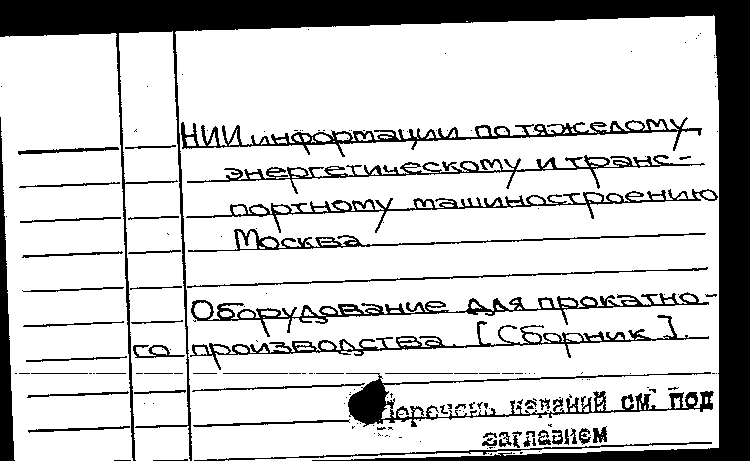 НИИ информации по тяжелому,
энергетическому и транс-
портному машиностроению
Москва
Оборудование для прокатно-
го производства. [Сборник].
Перечень изданий см. под
заглавием